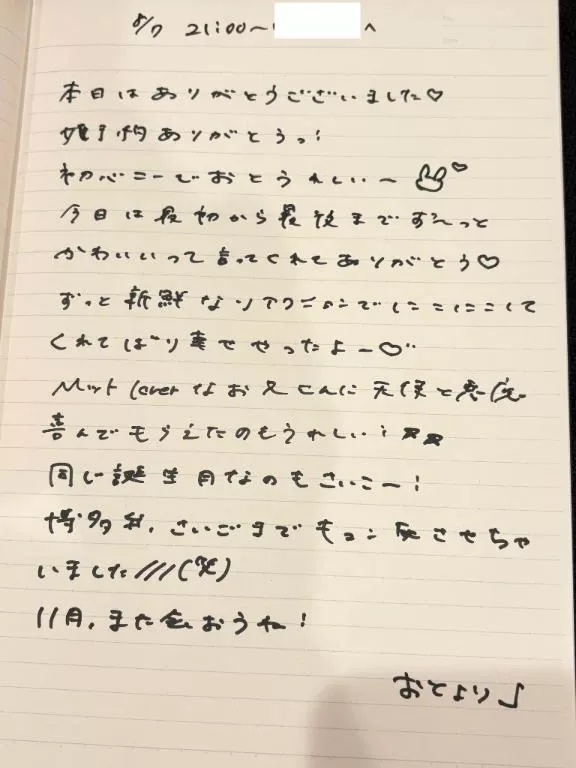 8/7 21:00〜 へ
本日はありがとうございました♡
ありがとうっ!
初バニーでおとうれしい〜 ♡
今日は最初から最後までず〜っと
かわいいって言ってくれてありがとう♡
ずっと新鮮なリアクションでにこにこして
くれてばり幸せやったよー♡
Mット loverなお兄さんに天使と
喜んでもらえたのもうれしい!
同じ誕生月なのもさいこー!
博多弁、さいごまでキュン させちゃ
いました///(笑)
11月、また会おうね!
おとより♪